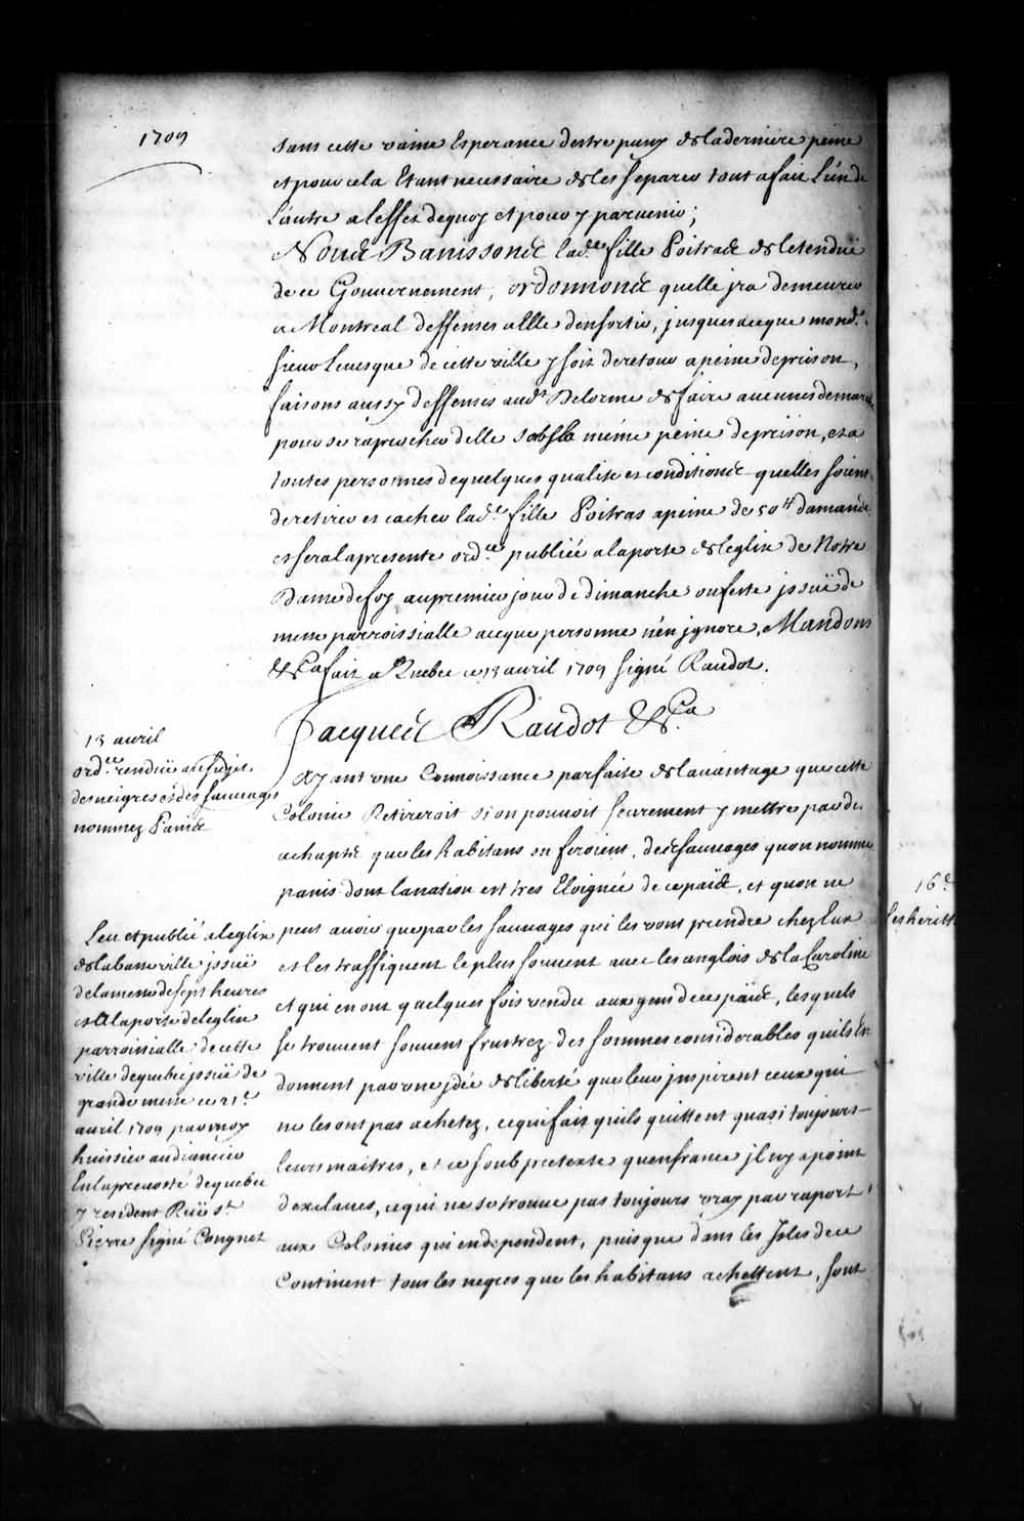 1709
dans cette vaine Esperance destre puny de la derniere peine
et pour cela Etant necessaire de les separer tout afait L'un de
L'autre a leffet dequoy et pour y parvenir;
Nous Banissons lad.e fille Poitras de letendüe
de ce Gouvernement, ordonnons quelle jra demeurer
a Montreal deffenses a Elle densortir, jusques aceque mond.
sieur Levesque de cette ville y soit deretour apeine deprison,
faisons aussy deffenses aud.t Delorme de faire aucunes demarches
pour se raprocher delle soubs la même peine deprison, et a
toutes personnes dequelques qualité et conditions quelles soient
deretirer et cacher lad.e fille Poitras apeine de 50tt damande
et sera lapresente ord.ce publiée alaporte de leglise de Notre
Dame defoy, aupremier jour de dimanche ou feste jssüe de
messe parroissialle aceque personne n'en jgnore, Mandons
&.Ca fait a Quebec ce 13 avril 1709 signé Raudot.
Jacques Raudot &.Ca
13 avril
ord.ce rendüe au sujet
des neigres et des sauvages
nommez Panis
Ayant une Connoissance parfaite de lavantage que cette
Colonie Retireroit si on pouvoit seurement y mettre par des
achapts que les habitans en feroient, des sauvages quon nomme
panis dont lanation est tres Eloignée de ce païs, et quon ne
peut avoir que par les sauvages qui les vont prendre chez Eux
et les traffiquent le plus souvent avec les anglois de la Caroline
et qui en ont quelques fois vendu aux gens de ce païs, lesquels
se trouvent souvent frustrez des sommes considerables quils En
donnent par une jdée de liberté que leur jnspirent ceux qui
ne les ont pas achetez, ce qui fait quils quittent quasi toujours
leurs maitres, et ce soub pretexte quenfrance jl ny a point
desclaves, ce qui ne se trouve pas toujours vray par raport
aux Colonies qui endependent, puisque dans les Jsles de ce
Continent tous les negres que les habitans achettent, sont
Leu et publié a leglise
de la basse ville jssüe
de la messe de sept heures
et A la porte de leglise
parroissialle de cette
ville dequebec jssüe de
grande messe ce 21.e
avril 1709 par moy
huissier audiancier
En la prevosté dequebec
y resident Rüe s.t
Pierre signé Congnet
16.e
Les herit